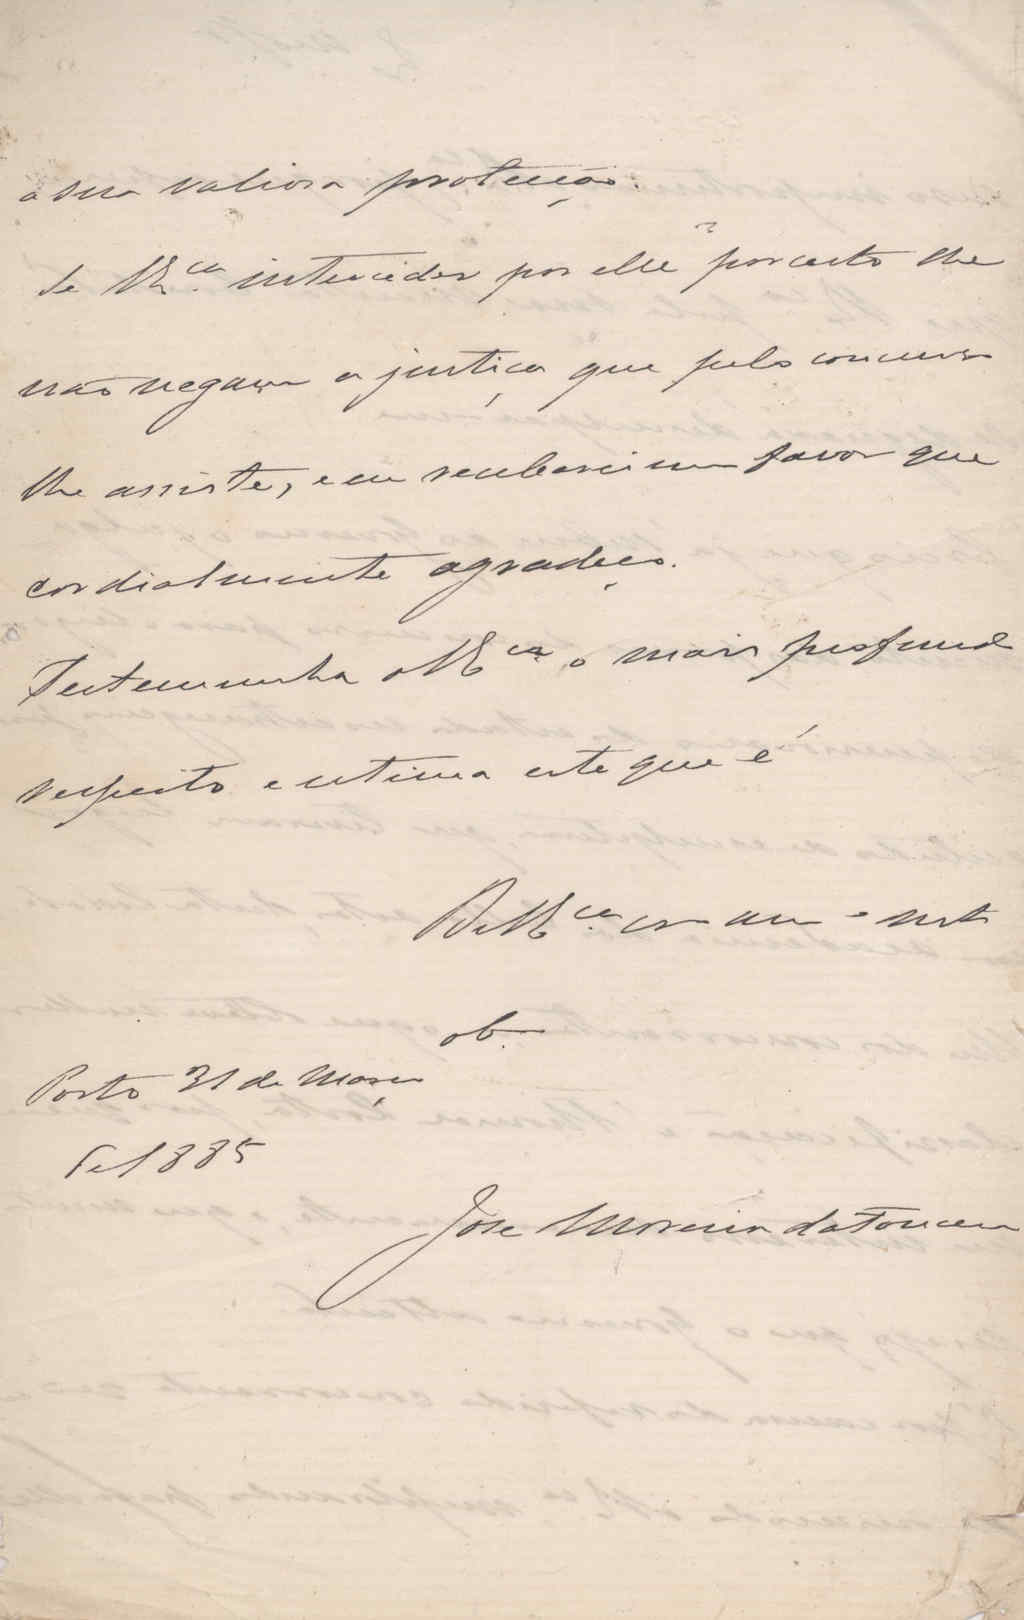 a sua valiosa protecção.
Se V. Exca. interceder por elle por certo lhe
não negarão a justiça que pelo concurso
lhe assiste, e eu receberei um favor que
cordialmente agradeço.
Testemunha a V. Exca. o mais profundo
respeito e estima este que é
De V. Exca.
obo.
Porto 31 de Março
de 1885
Jose Moreira da Fonseca